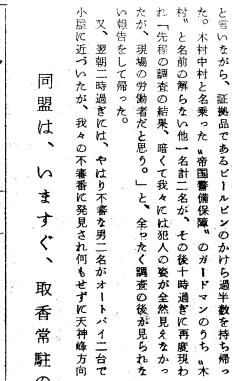 と言いながら、証拠品であるビールビンのかけら過半数を持ち帰っ
た。木村中村と名乗った〝帝国警備保障〟のガードマンのうち〝木
村〟と名前の解らない他一名計二名が、その後十時過ぎに再度現わ
れ「先程の調査の結果、暗くて我々には犯人の姿が全然見えなかっ
たが、現場の労働者だと思う。」と、全ったく調査の後が見られな
い報告をして帰った。
又、翌朝二時過ぎには、やはり不審な男二名がオートバイ二台で
小屋に近づいたが、我々の不審番に発見され何もせずに天神峰方向
同盟は、いますぐ、取香常駐の